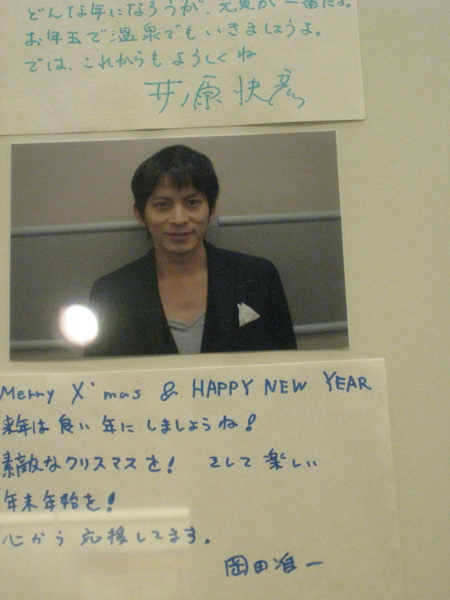 どんな年になろうが、元気が一番だよ。
お年玉で温泉でもいきましょうよ。
では、これからもよろしくね
井ノ原快彦
Merry X'mas & HAPPY NEW YEAR
来年は良い年にしましょうね!
素敵なクリスマスを! そして楽しい
年末年始を!
心から応援してます。
岡田准一